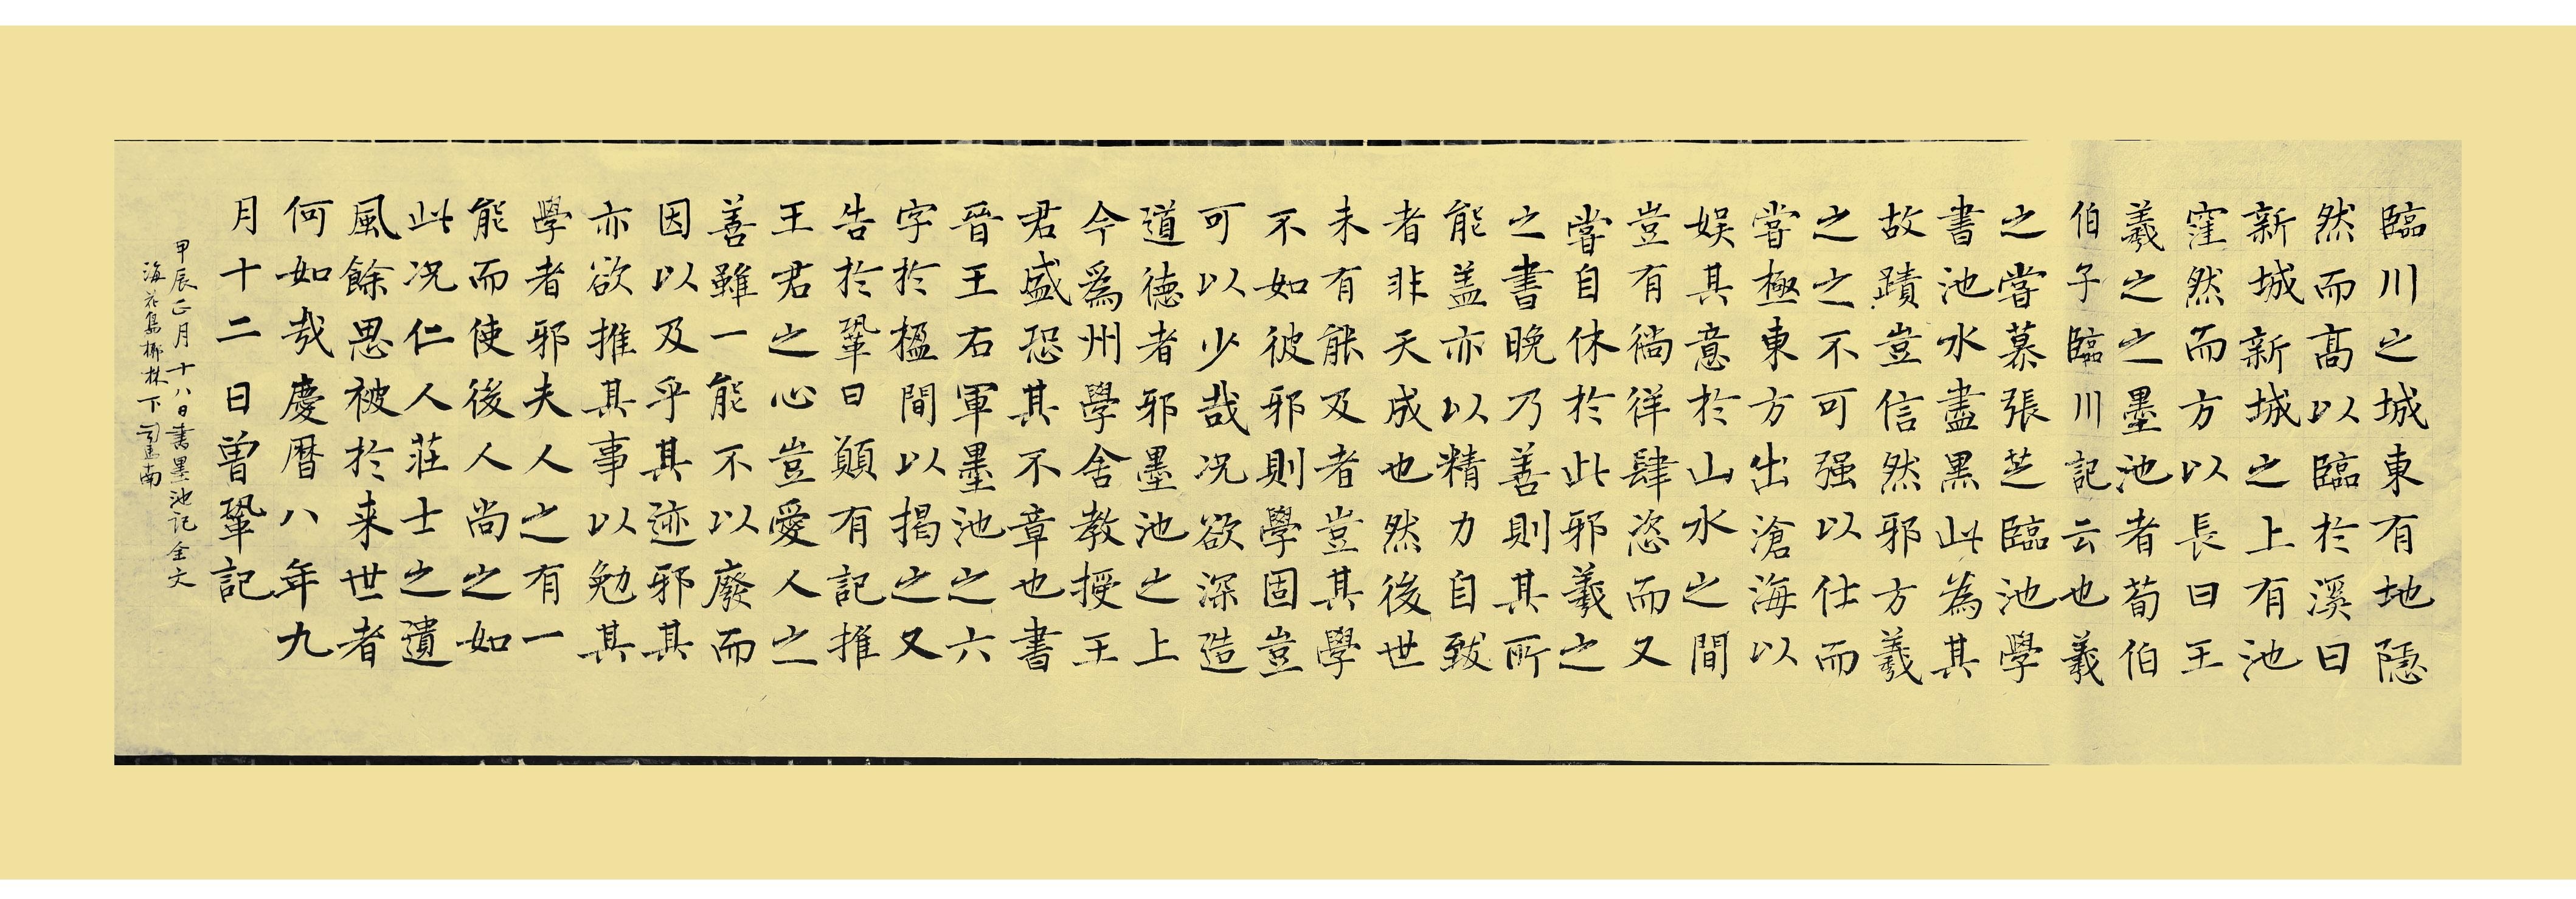 臨川之城東有地隱
然而髙以臨於溪曰
新城新城之上有池
窪然而方以長曰王
羲之之墨池者荀伯
伯子臨川記云也羲
之嘗慕張芝臨池學
書池水盡黑此為其
故蹟豈信然邪方羲
之之不可强以仕而
嘗極東方出滄海以
娱其意於山水之間
豈有徜徉肆恣而又
嘗自休於此邪羲之
之書晚乃善則其所
能盖亦以精力自致
者非天成也然後世
未有能及者豈其學
不如彼邪則學固豈
可以少哉况欲深造
道德者邪墨池之上
今爲州學舍教授王
君盛恐其不章也書
晉王右軍墨池之六
字於楹間以揭之又
告於鞏曰願有記推
王君之心豈愛人之
善雖一能不以廢而
因以及乎其迹邪其
亦欲推其事以勉其
學者邪夫人之有一
能而使後人尚之如
此况仁人莊士之遺
風餘思被於来世者
何如哉慶曆八年九
月十二日曾鞏記
甲辰正月十八日書墨池記全文
海花島椰林下南